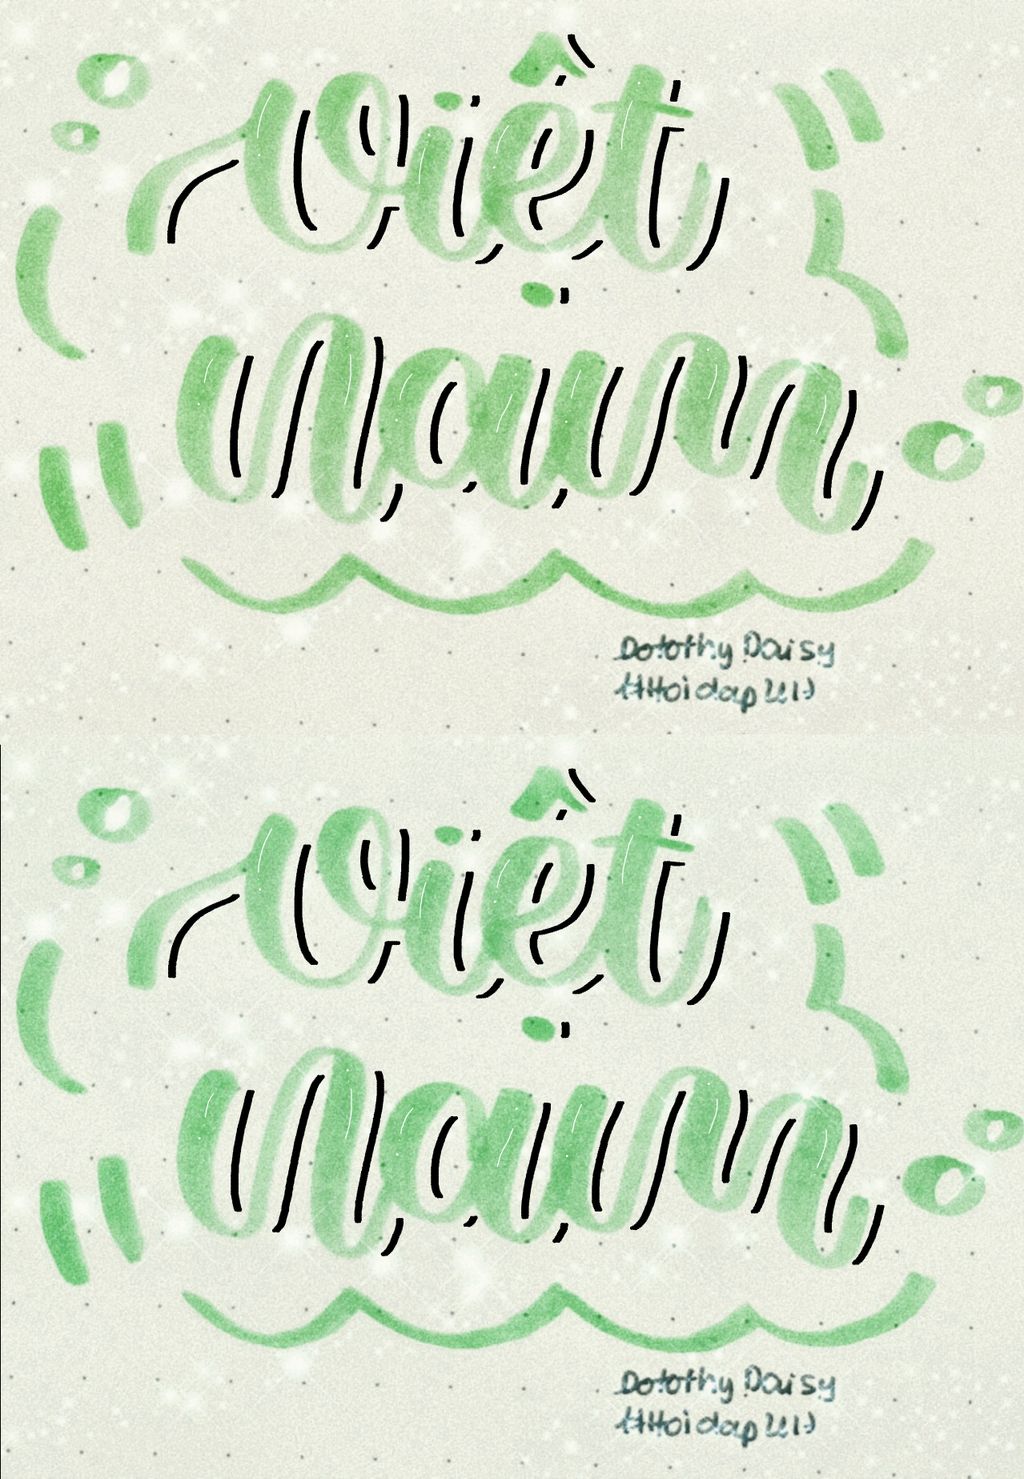 Việt
Nam
Dorothy Daisy
#Hoidap247
Việt
Nam
Dorothy Daisy
#Hoidap247